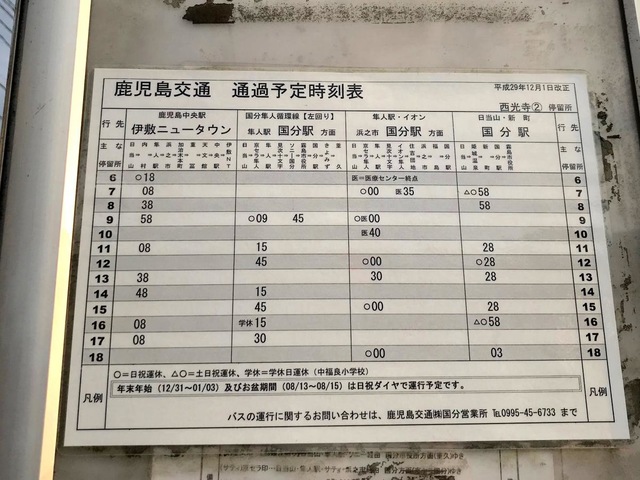 鹿児島交通 通過予定時刻表
平成29年12月1日改正
西光寺② 停留所
行先 鹿児島中央駅 伊敷ニュータウン 国分隼人循環線【左回り】 隼人駅 国分駅 方面 隼人駅・イオン 浜之市 国分駅 方面 日当山・新町 国分駅 行先
主な停留所 主な停留所
6 ○18 医=医療センター終点 6
7 08 ○00 医35 △○58 7
8 38 58 8
9 58 ○09 45 ○医00 9
10 医40 10
11 08 15 28 11
12 45 ○00 ○28 12
13 38 30 28 13
14 48 15 14
15 45 ○00 28 15
16 08 学休15 △○58 16
17 08 30 17
18 ○00 03 18
凡例 ○=日祝運休、△○=土日祝運休、学休=学休日運休（中福良小学校） 凡例
年末年始（12/31～01/03）及びお盆期間（08/13～08/15）は日祝ダイヤで運行予定です。
バスの運行に関するお問い合わせは、鹿児島交通㈱国分営業所 ℡0995-45-6733 まで